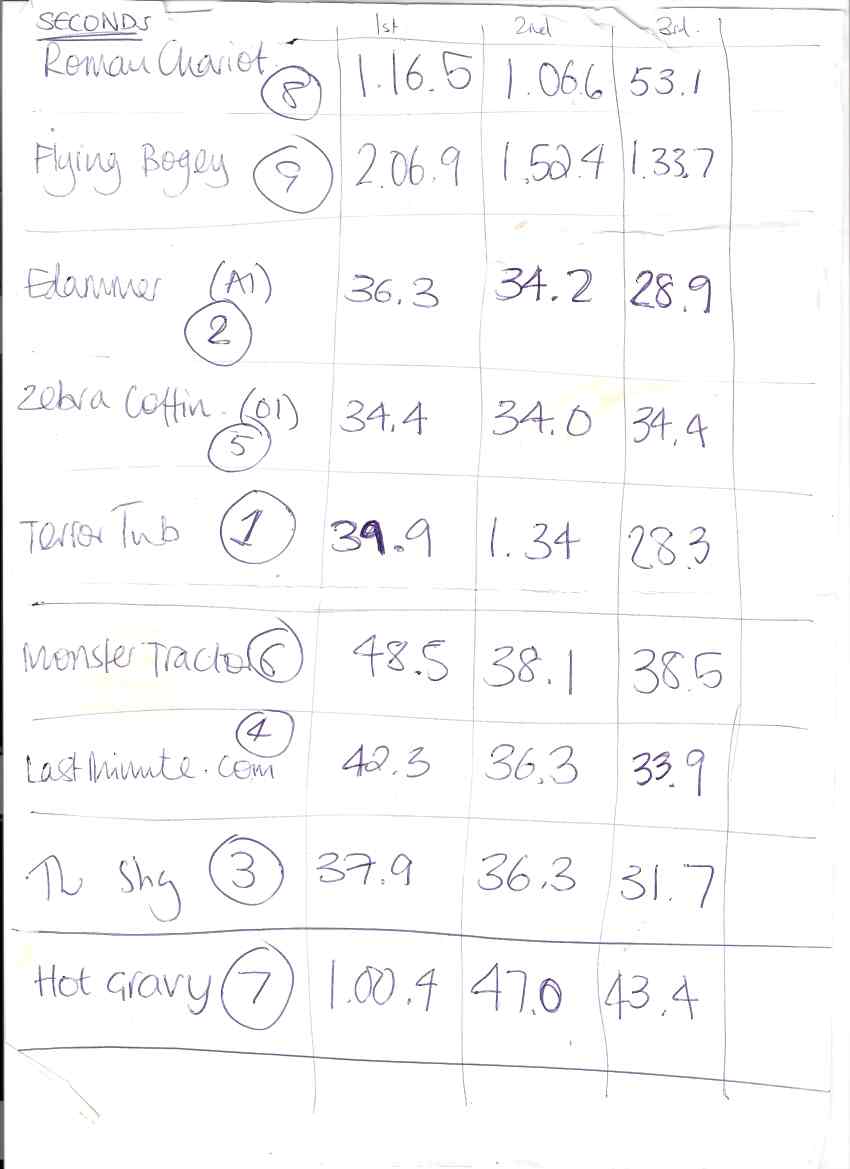 SECONDS 1st 2nd 3rd.
Roman Chariot. 8 1.16.5 1.06.6 53.1
Flying Bogey 9 2.06.9 1.52.4 1.33.7
Edammer (A1) 36.3 34.2 28.9
2
Zebra Coffin. (01) 34.4 34.0 34.4
5
Terror Tub 1 39.9 1.34 28.3
Monster Tractor 6 48.5 38.1 38.5
4
Last Minute.com 42.3 36.3 33.9
3 37.9 36.3 31.7
Hot Gravy 7 1.00.4 47.0 43.4